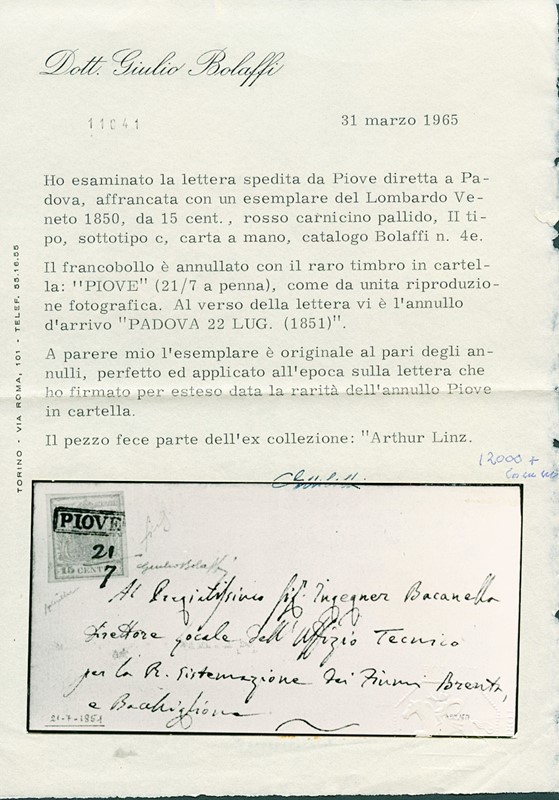 Dott. Giulio Bolaffi
11041
31 marzo 1965
Ho esaminato la lettera spedita da Piove diretta a Pa-
dova, affrancata con un esemplare del Lombardo Ve-
neto 1850, da 15 cent., rosso carnicino pallido, II ti-
po, sottotipo c, carta a mano, catalogo Bolaffi n. 4e.
Il francobollo è annullato con il raro timbro in cartel-
la: "PIOVE" (21/7 a penna), come da unita riproduzio-
ne fotografica. Al verso della lettera vi è l'annullo
d'arrivo "PADOVA 22 LUG. (1851)".
A parere mio l'esemplare è originale al pari degli an-
nulli, perfetto ed applicato all'epoca sulla lettera che
ho firmato per esteso data la rarità dell'annullo Piove
in cartella.
Il pezzo fece parte dell'ex collezione: "Arthur Linz.
TORINO - VIA ROMA, 101 - TELEF. 55.16.55
12000 +
PIOVE
21
7
15 CENT
Giulio Bolaffi
Al Pregiatissimo Sig. Ingegner Bacanello
Direttore locale dell'Uffizio Tecnico
per la R. Sistemazione dei Fiumi Brenta,
e Bacchiglione
21-7-1851